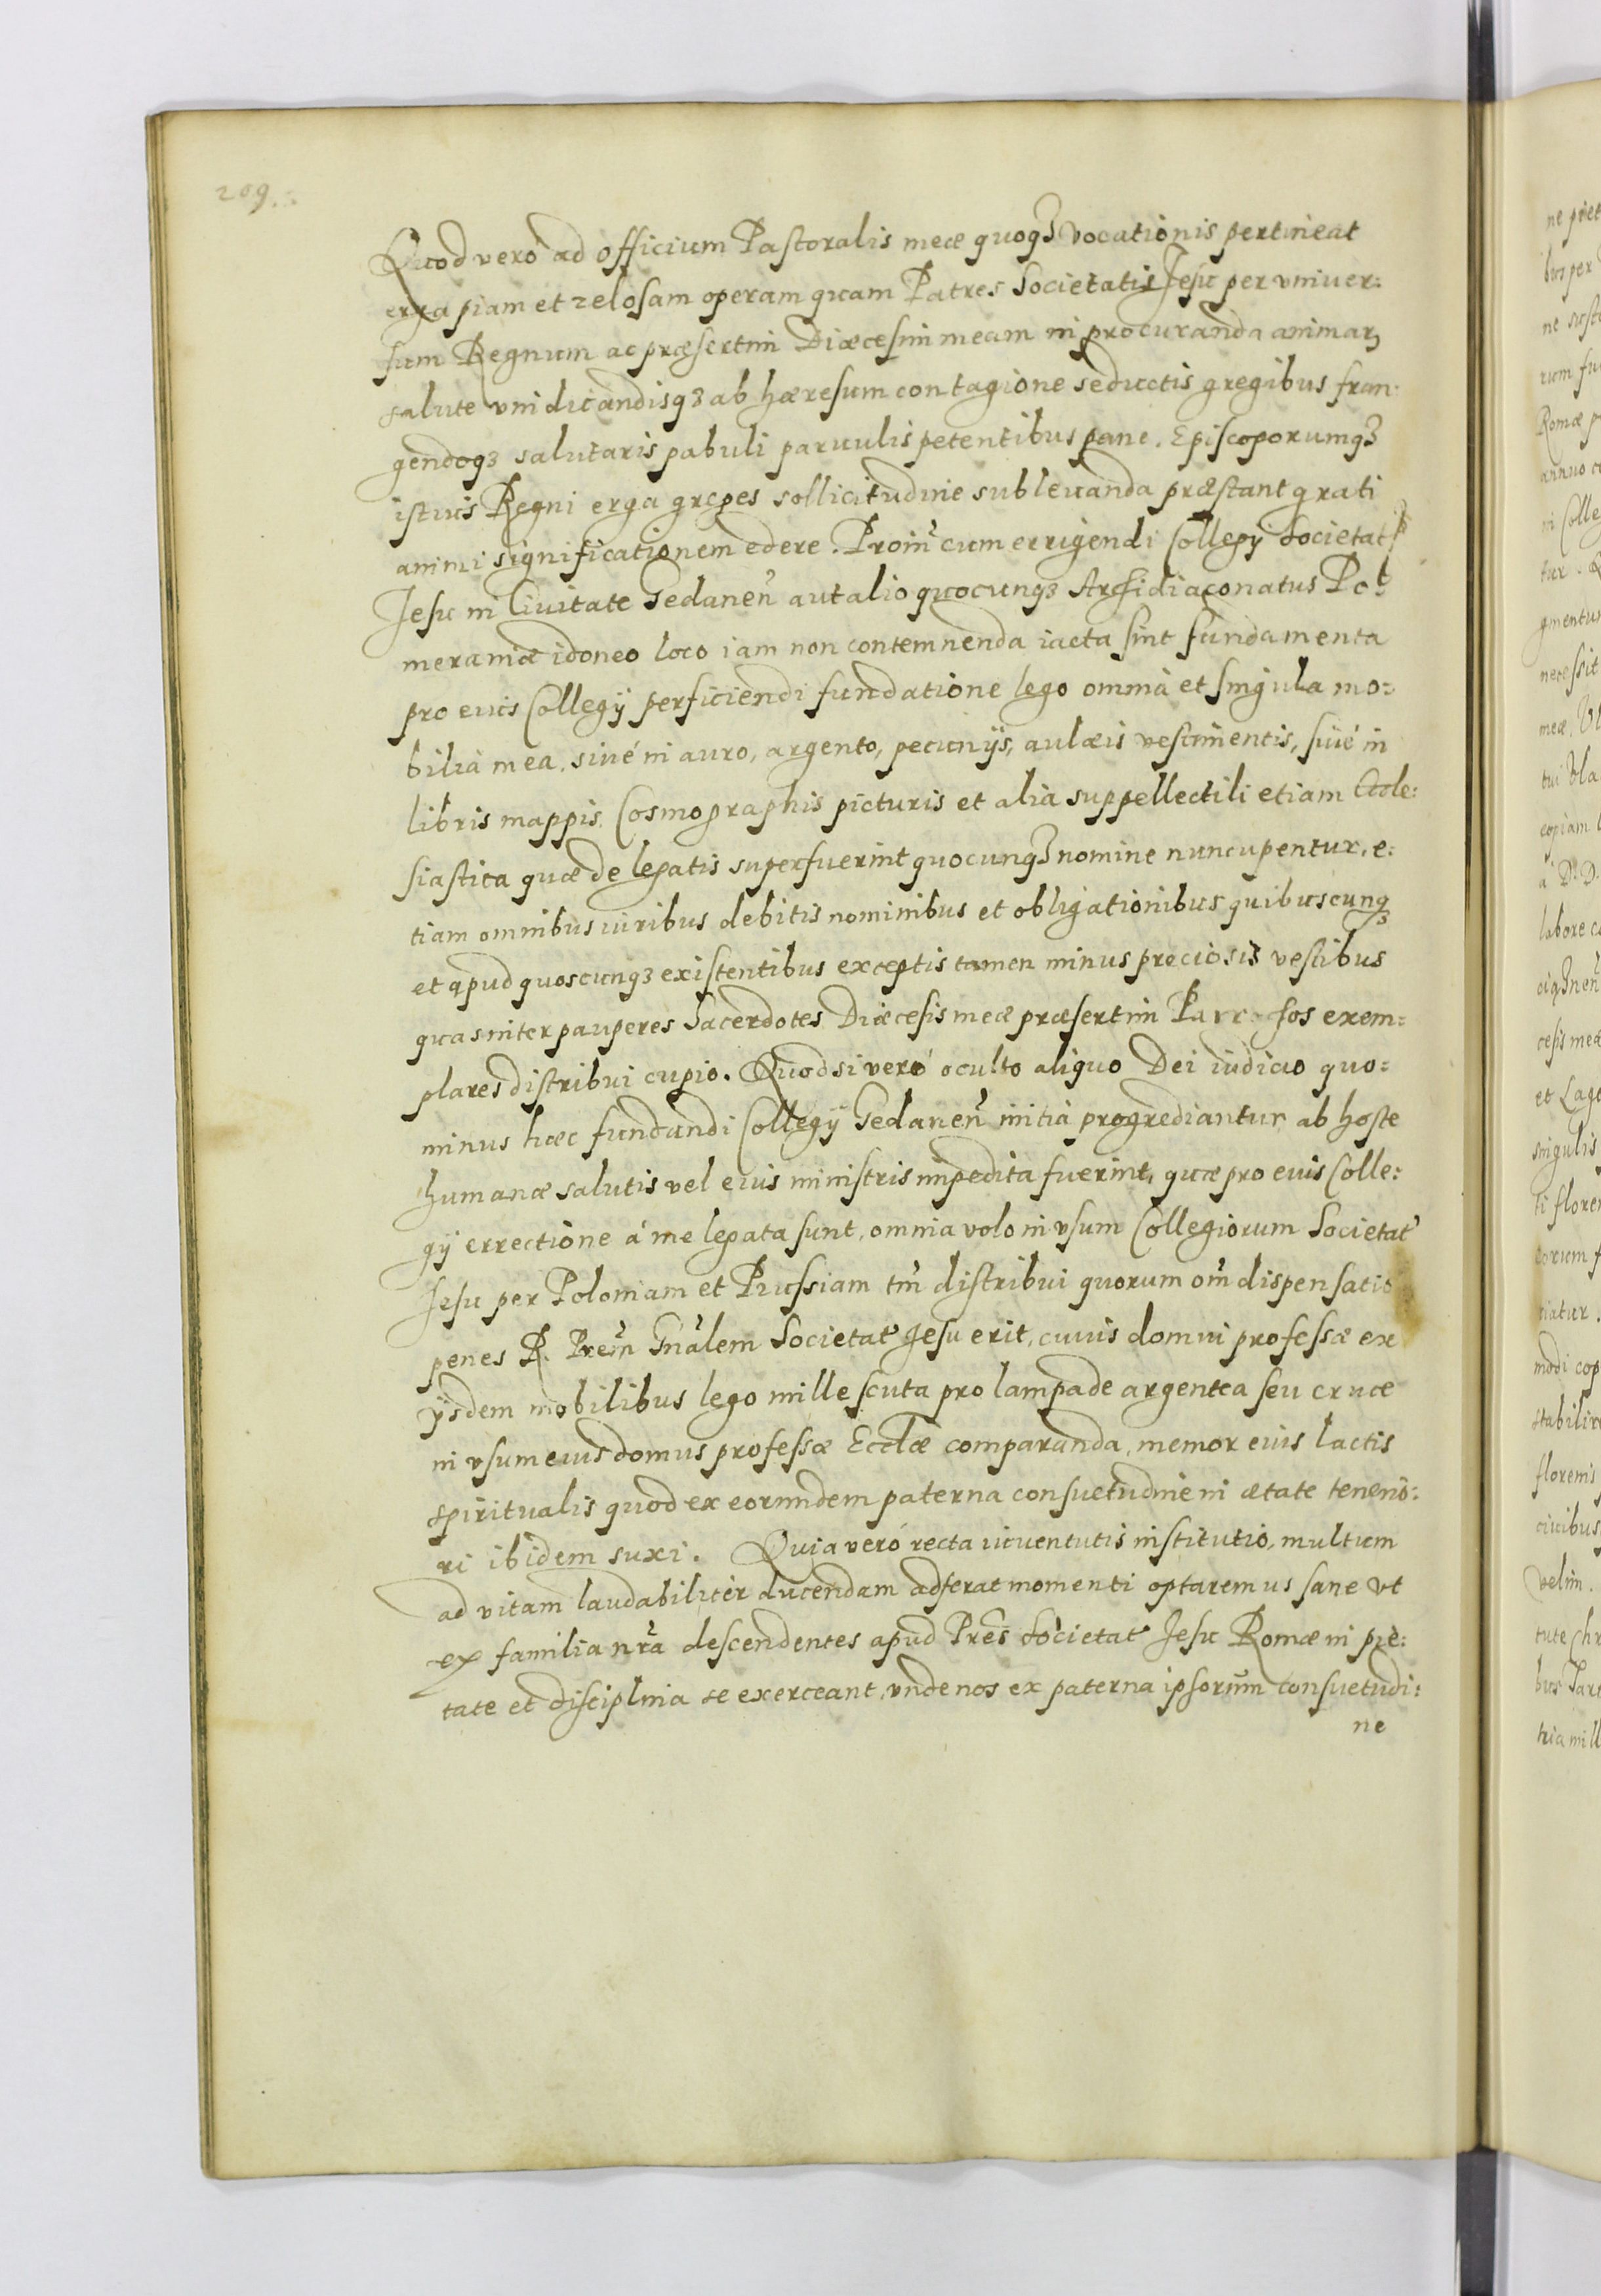 209.
Quod vero ad officium Pastoralis meæ quoqȝ vocationis pertineat
erga piam et zelosam operam quam Patres Societatis Jesu per vniuer:
sum Regnum ac præsertim Diæcesim meam in procuranda animarꝫ
salute vindicandisqȝ ab hæresum contagione seductis gregibus fran:
gendoqȝ salutaris pabuli paruulis petentibus pane. Episcoporumqȝ
istius Regni erga greges sollicitudine subleuanda præstant grati
animi significationem edere. Proin̄ cum errigendi Collegÿ Societat
Jesu in Ciuitate Gedanen̄ aut alio quocunqȝ Archidiaconatus Po
meraniæ idoneo loco iam non contemnenda iacta sint fundamenta
pro eius Collegÿ perficiendi fundatione lego omnia et singula mo:
bilia mea, siué in auro, argento, pecunÿs, aulæis vestimentis, siué in
libris mappis Cosmographis picturis et alia suppellectili etiam Eccle:
siastica quæ de legatis superfuerint quocunqȝ nomine nuncupentur, e:
tiam omnibus iuribus debitis nominibus et obligationibus quibuscunqȝ
et apud quoscunqȝ existentibus exceptis tamen minus preciosis vestibus
quas inter pauperes Sacerdotes Diæcesis meæ præsertim Parochos exem:
plares distribui cupio. Quod si veró oculto aliquo Dei iudicio quo:
minus hæc fundandi Collegÿ Gedanen̄ initia progrediantur ab hoste
humanæ salutis vel eius ministris impedita fuerint, quæ pro euis Colle:
gÿ errectione á me legata sunt, omnia volo in vsum Collegiorum Societat
Jesu per Poloniam et Prussiam tm̄ distribui quorum om̄ dispensatio
penes R. Prem̄ Gn̄alem Societat Jesu erit, cuuis domui professæ ex
ÿsdem mobilibus lego mille scuta pro lampade argentea seu cruce
in vsum eius domus professæ Eccl̄æ comparanda, memor euis lactis
spiritualis quod ex eorundem paterna consuetudine in ætate tenerio:
ri ibidem suxi. Quia veró recta iuuentutis institutio, multum
ad vitam laudabilitér ducendam adferat momenti optaremus sane vt
ex familia nr̄a descendentes apud Pres̄ Societat Jesu Romæ in pie:
tate et disciplina se exerceant, vnde nos ex paterna ipsorum consuetudi:
ne